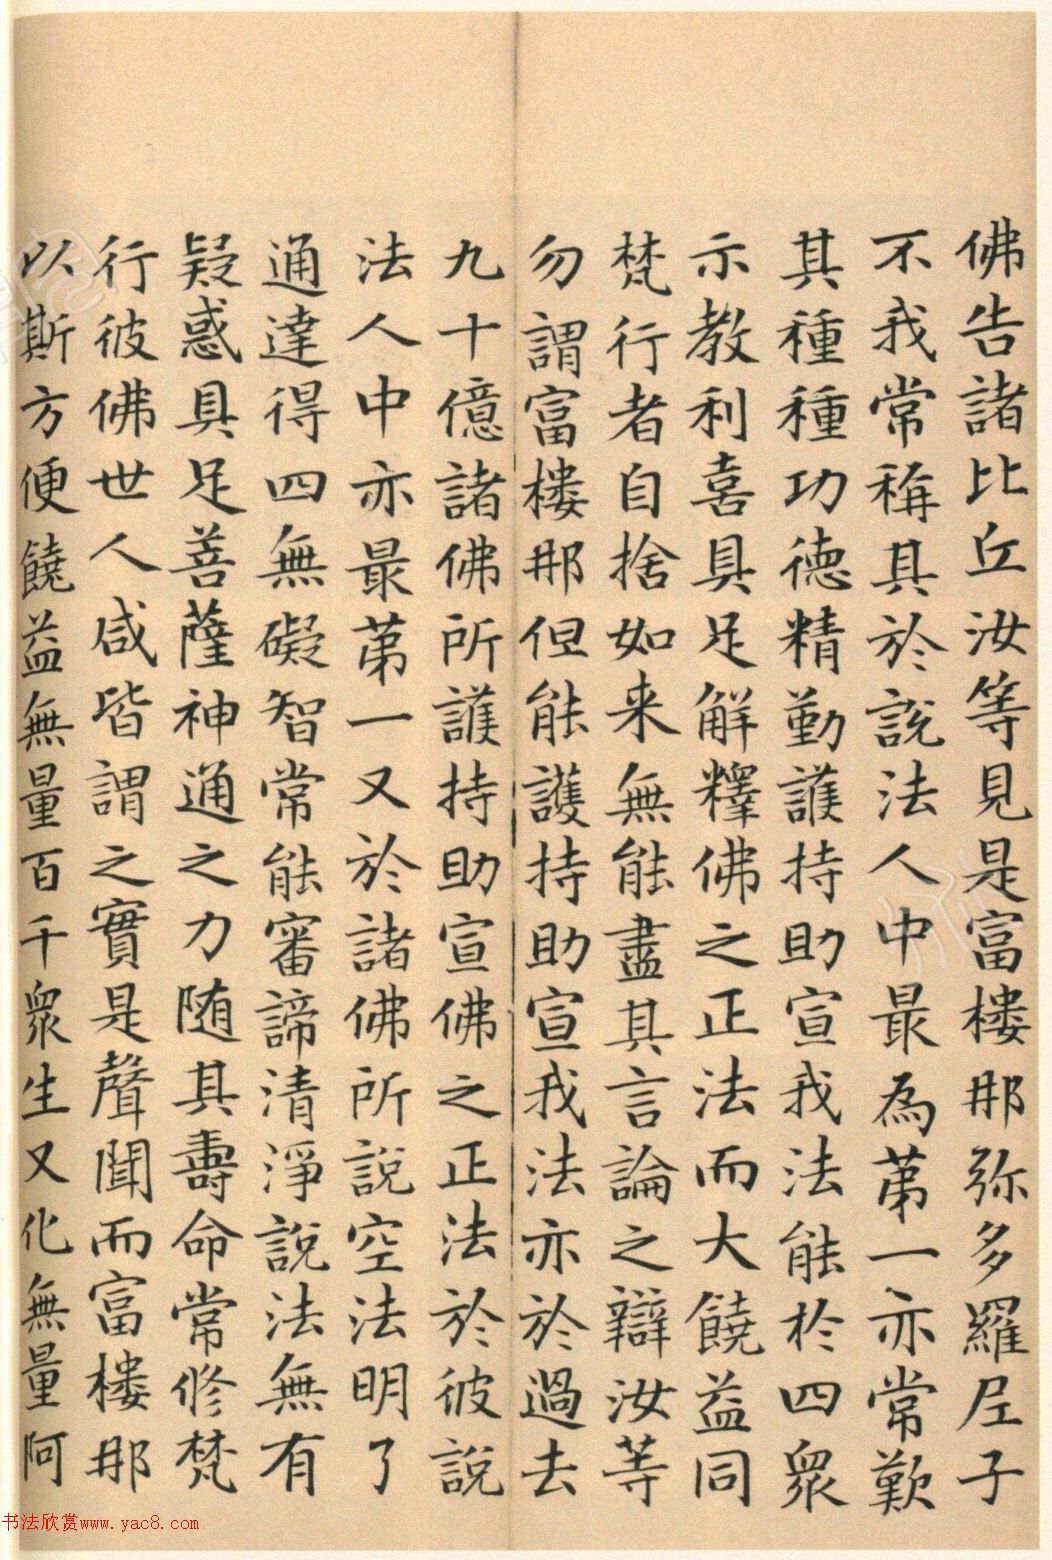 佛告諸比丘汝等見是富樓那弥多羅尼子
不我常稱其於說法人中最為第一亦常歎
其種種功德精勤護持助宣我法能於四眾
示教利喜具足解釋佛之正法而大饒益同
梵行者自捨如来無能盡其言論之辯汝等
勿謂富樓那但能護持助宣我法亦於過去
九十億諸佛所護持助宣佛之正法於彼說
法人中亦最第一又於諸佛所說空法明了
通達得四無礙智常能審諦清淨說法無有
疑惑具足菩薩神通之力随其壽命常修梵
行彼佛世人咸皆謂之實是聲聞而富樓那
以斯方便饒益無量百千眾生又化無量阿
书法欣赏www.yac8.com